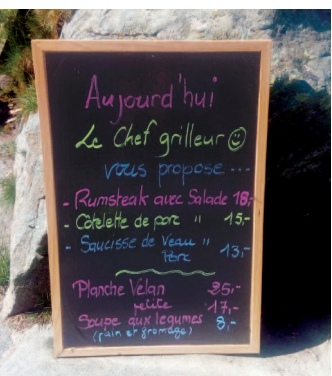 Aujourd'hui
Le Chef grilleur
vous propose ...
- Rumsteak avec Salade 18,-
- Côtelette de porc " 15,-
- Saucisse de Veau "
Porc 13,-
Planche Vélan 25,-
petite 17,-
Soupe aux legumes 8,-
(pain et fromage)